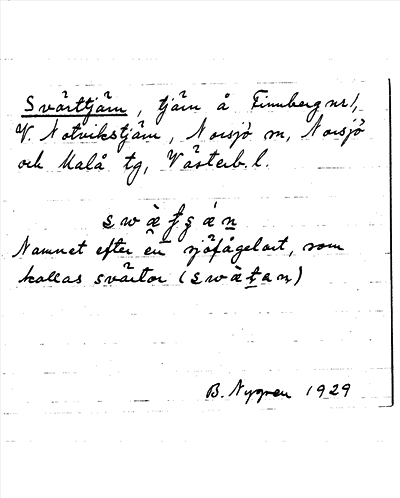 Svärttjärn, tjärn å Finnberg nr 1,
V. Notvikstjärn, Norsjö sn, Norsjö
och Malå tg, Västerb. l.
Namnet efter en sjöfågelart, som
kallas svärtor (swätan)
B. Nygren 1929